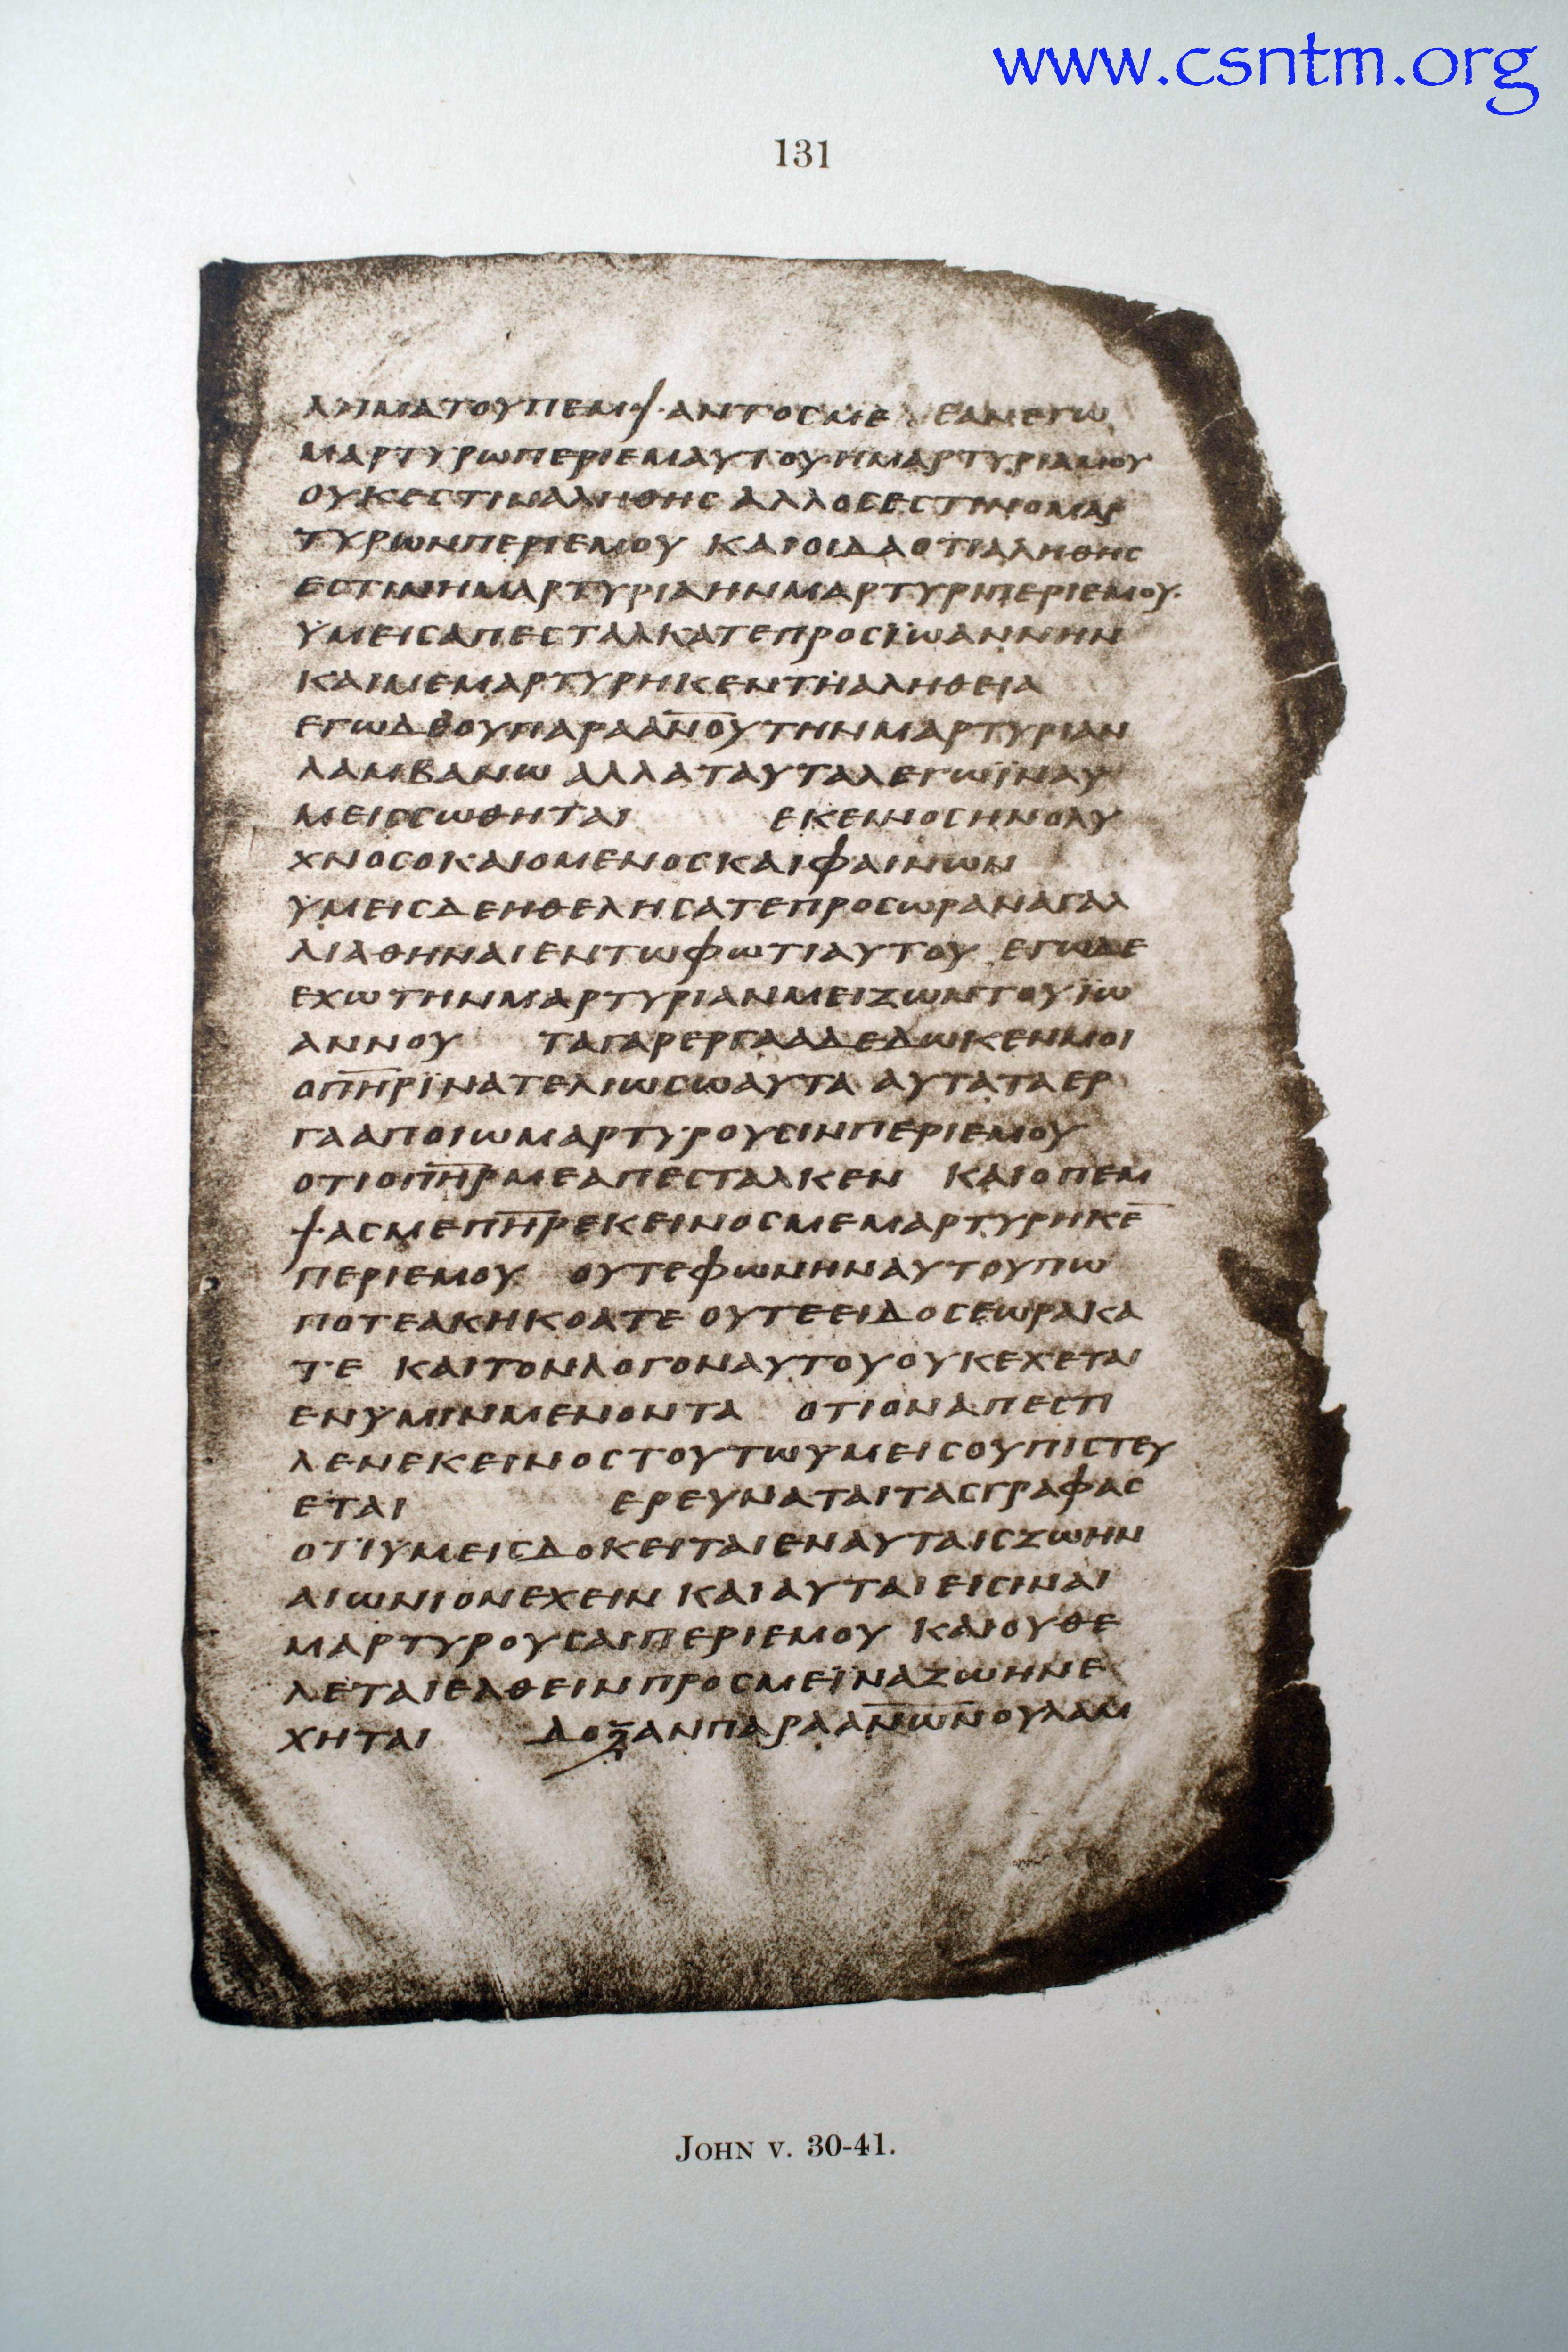 www.csntm.org
131
ΛΗΜΑΤΟΥΠΕΜΨΑΝΤΟCΜΕ ΕΑΝΕΓΩ
ΜΑΡΤΥΡΩΠΕΡΙΕΜΑΥΤΟΥΗΜΑΡΤΥΡΙΑΜΟΥ
ΟΥΚΕCΤΙΝΑΛΗΘΗC ΑΛΛΟCΕCΤΙΝΟΜΑΡ
ΤΥΡΩΝΠΕΡΙΕΜΟΥ ΚΑΙΟΙΔΑΟΤΙΑΛΗΘΗC
ΕCΤΙΝΗΜΑΡΤΥΡΙΑΗΝΜΑΡΤΥΡΙΠΕΡΙΕΜΟΥ·
ΥΜΕΙCΑΠΕCΤΑΛΚΑΤΕΠΡΟCΪΩΑΝΝΗΝ
ΚΑΙΜΕΜΑΡΤΥΡΗΚΕΝΤΗΑΛΗΘΕΙΑ
ΕΓΩΔΕΟΥΠΑΡΑΑ̅Ν̅Ο̅Υ̅ΤΗΝΜΑΡΤΥΡΙΑΝ
ΛΑΜΒΑΝΩ ΑΛΛΑΤΑΥΤΑΛΕΓΩΪΝΑΥ
ΜΕΙCCΩΘΗΤΑΙ ΕΚΕΙΝΟCΗΝΟΛΥ
ΧΝΟCΟΚΑΙΟΜΕΝΟCΚΑΙΦΑΙΝΩΝ
ΥΜΕΙCΔΕΗΘΕΛΗCΑΤΕΠΡΟCΩΡΑΝΑΓΑΛ
ΛΙΑΘΗΝΑΙΕΝΤΩΦΩΤΙΑΥΤΟΥ ΕΓΩΔΕ
ΕΧΩΤΗΝΜΑΡΤΥΡΙΑΝΜΕΙΖΩΝΤΟΥΪΩ
ΑΝΝΟΥ ΤΑΓΑΡΕΡΓΑΑΔΕΔΩΚΕΝΜΟΙ
ΟΠ̅Η̅Ρ̅ΪΝΑΤΕΛΙΩCΩΑΥΤΑ ΑΥΤΑΤΑΕΡ
ΓΑΑΠΟΙΩΜΑΡΤΥΡΟΥCΙΝΠΕΡΙΕΜΟΥ
ΟΤΙΟΠ̅Η̅Ρ̅ΜΕΑΠΕCΤΑΛΚΕΝ ΚΑΙΟΠΕΜ
ΨΑCΜΕΠ̅Η̅Ρ̅ΕΚΕΙΝΟCΜΕΜΑΡΤΥΡΗΚΕ̅
ΠΕΡΙΕΜΟΥ ΟΥΤΕΦΩΝΗΝΑΥΤΟΥΠΩ
ΠΟΤΕΑΚΗΚΟΑΤΕ ΟΥΤΕΕΙΔΟCΕΩΡΑΚΑ
ΤΕ ΚΑΙΤΟΝΛΟΓΟΝΑΥΤΟΥΟΥΚΕΧΕΤΑΙ
ΕΝΥΜΙΝΜΕΝΟΝΤΑ ΟΤΙΟΝΑΠΕCΤΙ
ΛΕΝΕΚΕΙΝΟCΤΟΥΤΩΥΜΕΙCΟΥΠΙCΤΕΥ
ΕΤΑΙ ΕΡΕΥΝΑΤΑΙΤΑCΓΡΑΦΑC
ΟΤΙΥΜΕΙCΔΟΚΕΙΤΑΙΕΝΑΥΤΑΙCΖΩΗΝ
ΑΙΩΝΙΟΝΕΧΕΙΝ ΚΑΙΑΥΤΑΙΕΙCΙΝΑΙ
ΜΑΡΤΥΡΟΥCΑΙΠΕΡΙΕΜΟΥ ΚΑΙΟΥΘΕ
ΛΕΤΑΙΕΛΘΕΙΝΠΡΟCΜΕΪΝΑΖΩΗΝΕ
ΧΗΤΑΙ ΔΟΞΑΝΠΑΡΑΑ̅Ν̅Ω̅Ν̅ΟΥΛΑΜ
JOHN V. 30-41.